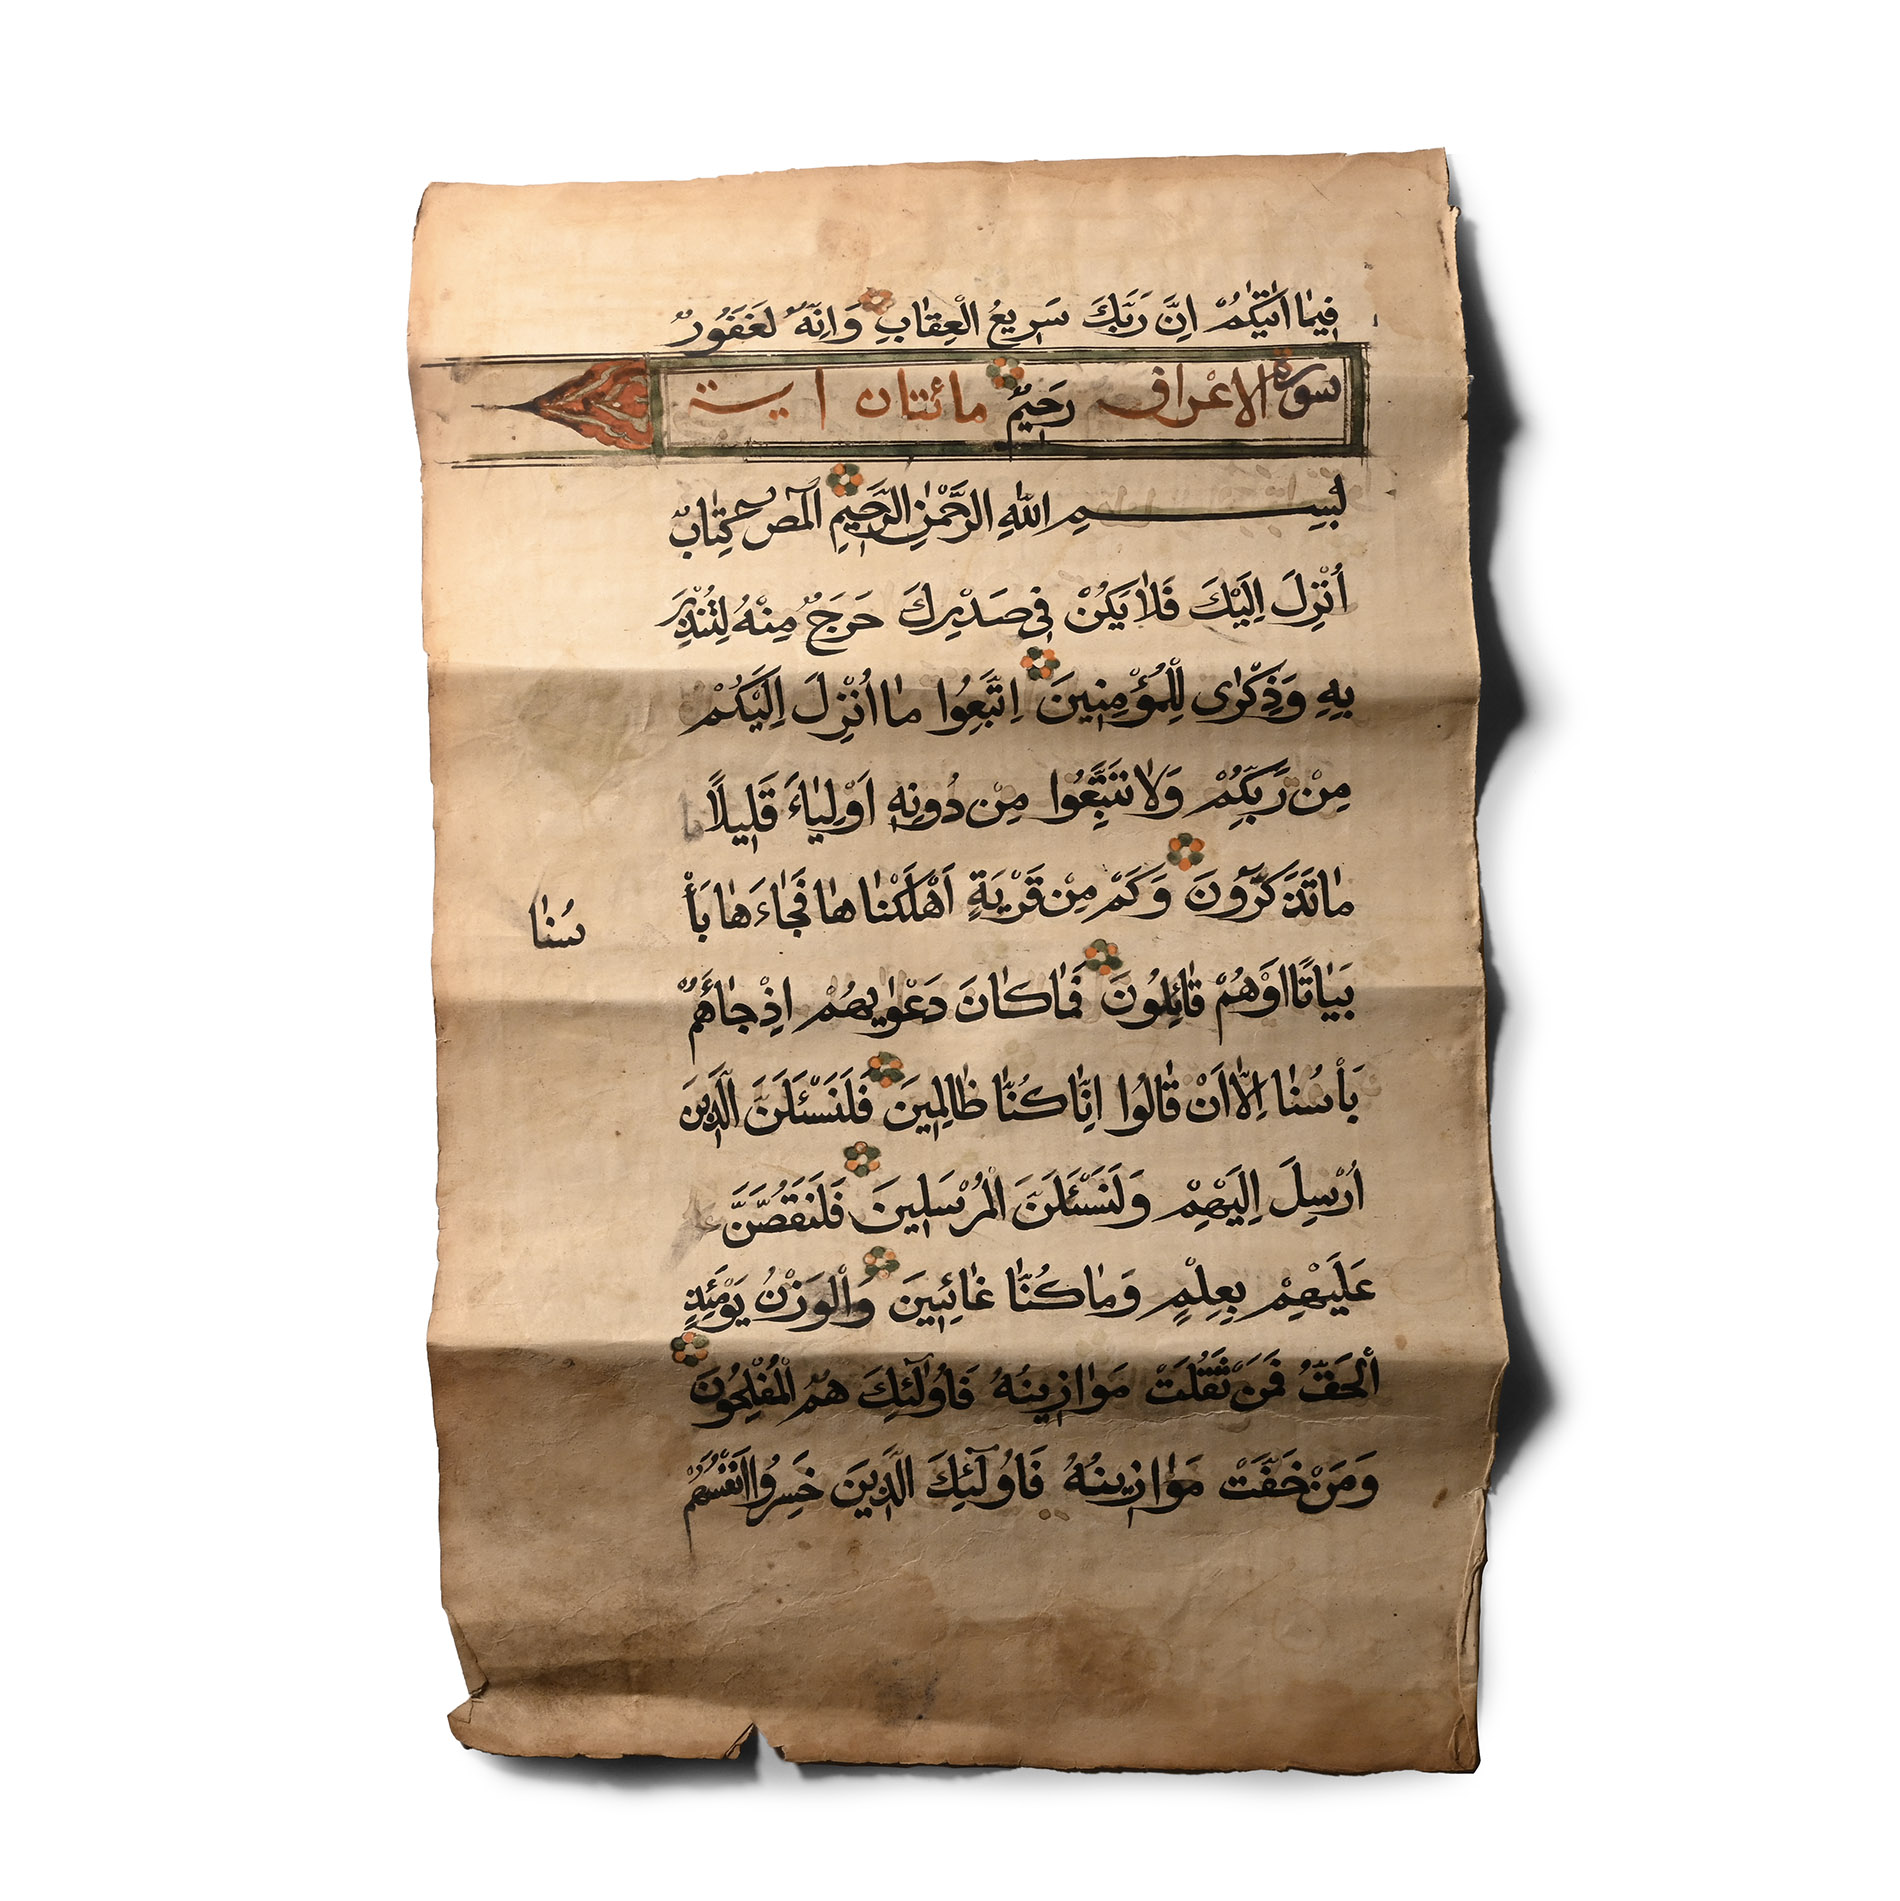 فِيمٰا اٰتٰيكُمْ اِنَّ رَبَّكَ سَرِيعُ الْعِقٰابِ وَاِنَّهُ لَغَفُورٌ
سورة الاعراف رَحِيمٌ مائتان اية
بِسْمِ اللّٰهِ الرَّحْمٰنِ الرَّحِيمِ الٓمٓصٓ كِتٰابٌ
اُنْزِلَ اِلَيْكَ فَلاٰ يَكُنْ فِى صَدْرِكَ حَرَجٌ مِنْهُ لِتُنْذِرَ
بِهِ وَذِكْرٰى لِلْمُؤْمِنِينَ اِتَّبِعُوا مٰا اُنْزِلَ اِلَيْكُمْ
مِنْ رَبِّكُمْ وَلاٰ تَتَّبِعُوا مِنْ دُونِهِ اَوْلِيٰاءَ قَلِيلاً
مٰا تَذَكَّرُونَ وَكَمْ مِنْ قَرْيَةٍ اَهْلَكْنٰاهٰا فَجٰاءَهٰا بَأْ
سُنٰا
بَيٰاتًا اَوْهُمْ قٰائِلُونَ فَمٰا كٰانَ دَعْوٰيهُمْ اِذْ جٰاءَهُمْ
بَأْسُنٰا اِلاّٰ اَنْ قٰالُوا اِنّٰا كُنّٰا ظٰالِمِينَ فَلَنَسْئَلَنَّ الَّذِينَ
اُرْسِلَ اِلَيْهِمْ وَلَنَسْئَلَنَّ الْمُرْسَلِينَ فَلَنَقُصَّنَّ
عَلَيْهِمْ بِعِلْمٍ وَمٰا كُنّٰا غٰائِبِينَ وَالْوَزْنُ يَوْمَئِذٍ
اَلْحَقُّ فَمَنْ ثَقُلَتْ مَوٰازِينُهُ فَاُولٰٓئِكَ هُمُ الْمُفْلِحُونَ
وَمَنْ خَفَّتْ مَوٰازِينُهُ فَاُولٓئِكَ الَّذِينَ خَسِرُوا اَنْفُسَهُمْ